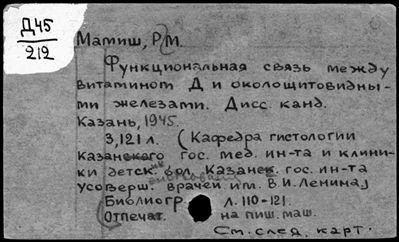 Д45
212
Мамиш, Р.М.
Функциональная связь между
витамином Д и околощитовидны-
ми железами. Дисс. канд.
Казань, 1945.
3, 121 л. (Кафедра гистологии
Казанского гос. мед. ин-та и клини-
ки детск. бол. Казанск. гос. ин-та
усоверш. врачей им. В.И. Ленина)
Библиогр. л. 110-121.
Отпечат. на пиш. маш.
См. след. карт.